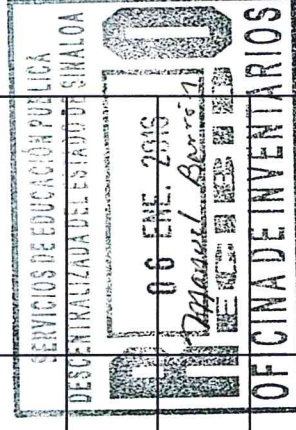 SERVICIOS DE EDUCACIÓN PÚBLICA
DESCENTRALIZADA DEL ESTADO DE SINALOA
06 ENE. 2016
Manuel Barrón
RECIBIDO
OFICINA DE INVENTARIOS